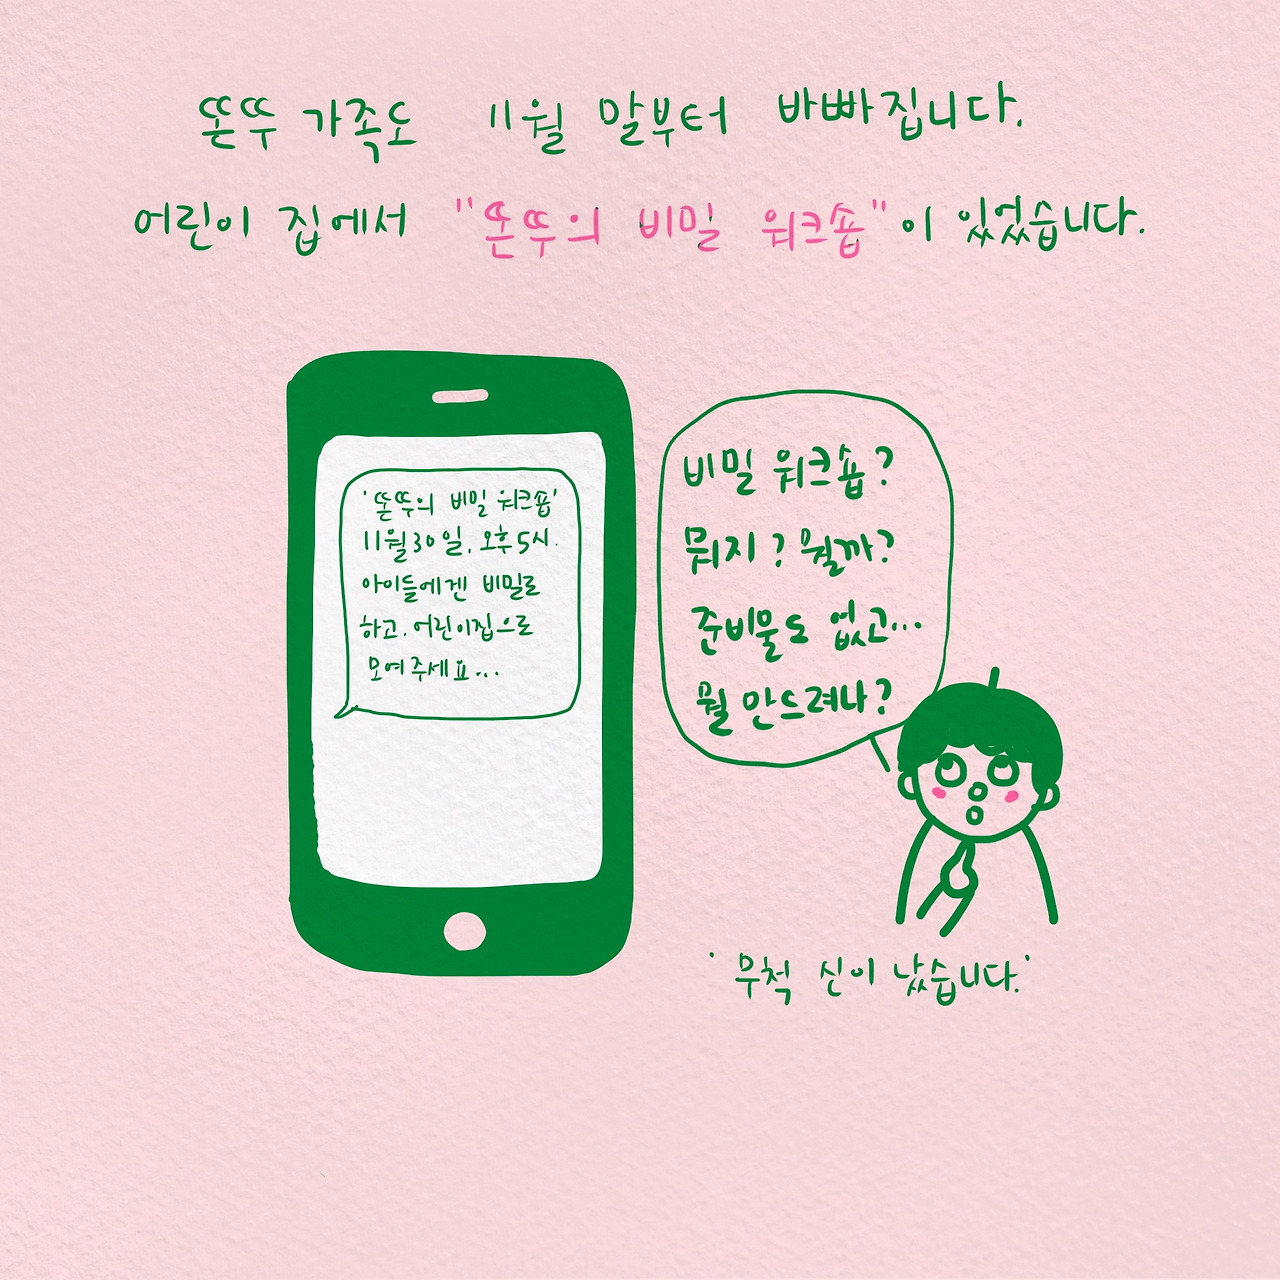 똗뚜 가족도 11월 말부터 바빠집니다.
어린이 집에서 "똗뚜의 비밀 워크숍"이 있었습니다.
'똗뚜의 비밀 워크숍'
11월30일, 오후5시.
아이들에겐 비밀로
하고, 어린이집으로
모여주세요...
비밀 워크숍?
뭐지? 뭘까?
준비물도 없고...
뭘 만드려나?
'무척 신이 났습니다.'